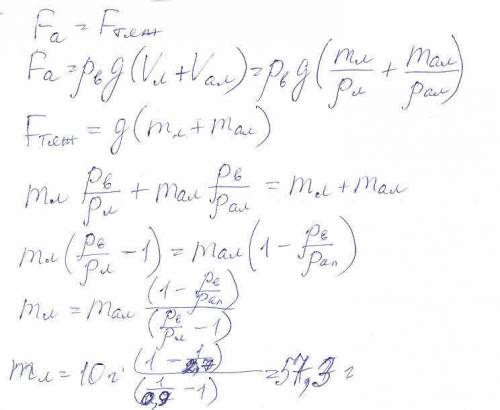 Fа = Fтяж
Fа = ρв g (Vл + Vал) = ρв g (mл/ρл + mал/ρал)
Fтяж = g (mл + mал)
mл ρв/ρл + mал ρв/ρал = mл + mал
mл (ρв/ρл − 1) = mал (1 − ρв/ρал)
mл = mал (1 − ρв/ρал)/(ρв/ρл − 1)
mл = 10 г · (1 − 1/2,7)/(1/0,9 − 1) = 57,3 г